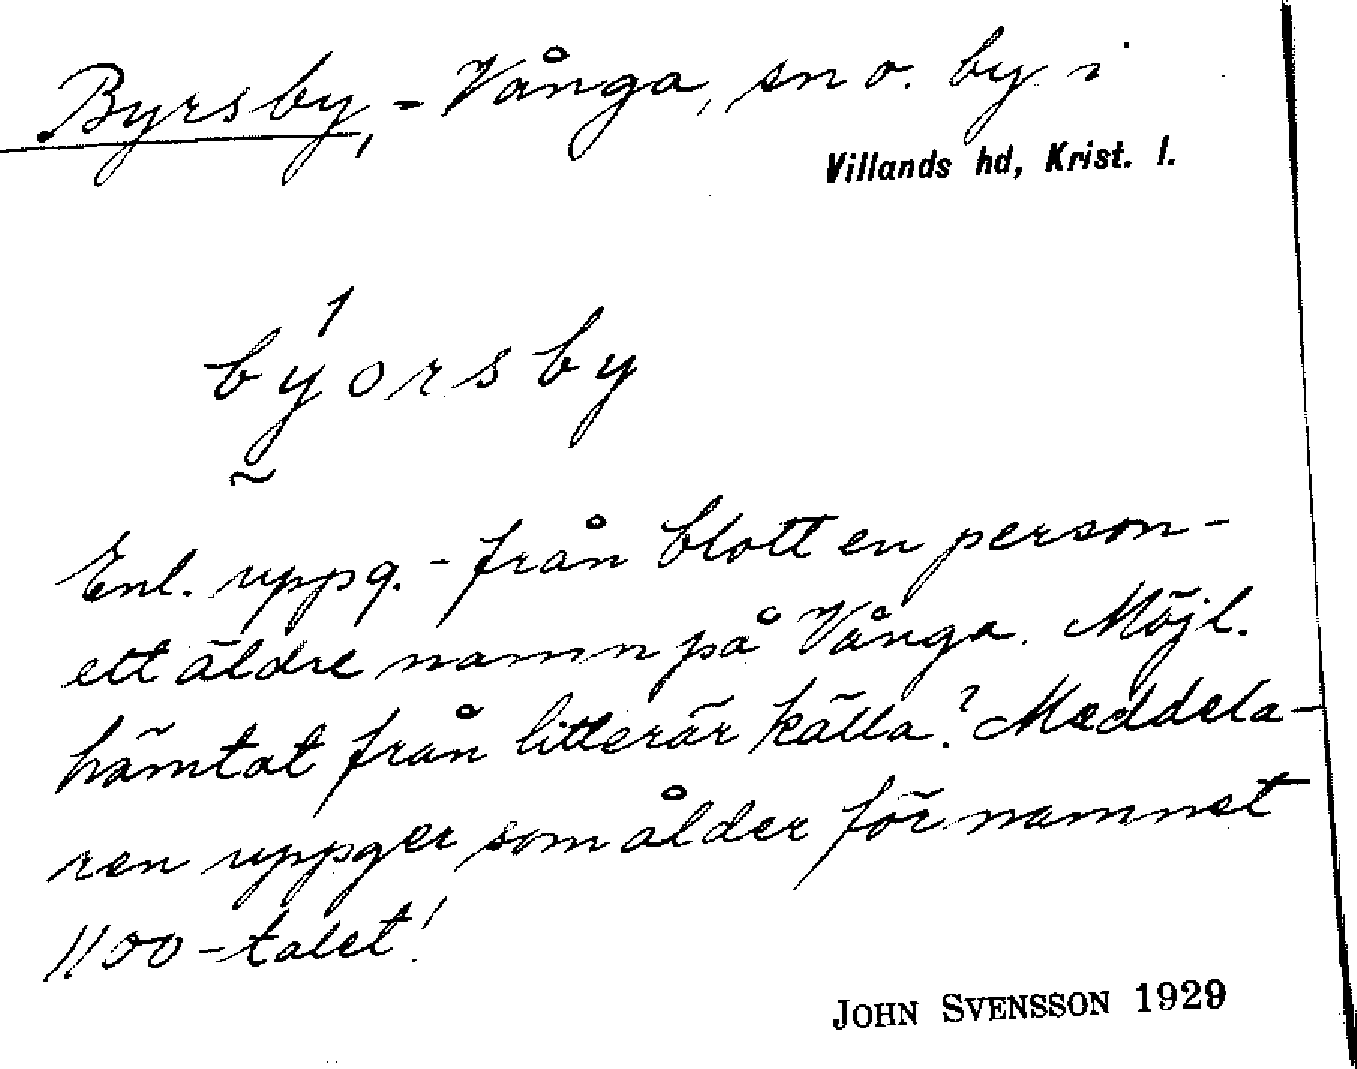 Byrsby, - Vånga, sn o. by i
Villands hd, Krist. l.
býorsby
Enl. uppg. - från blott en person -
ett äldre namn på Vånga. Möjl.
hämtat från litterär källa? Meddela-
ren uppger som ålder för namnet
1100-talet!
JOHN SVENSSON 1929